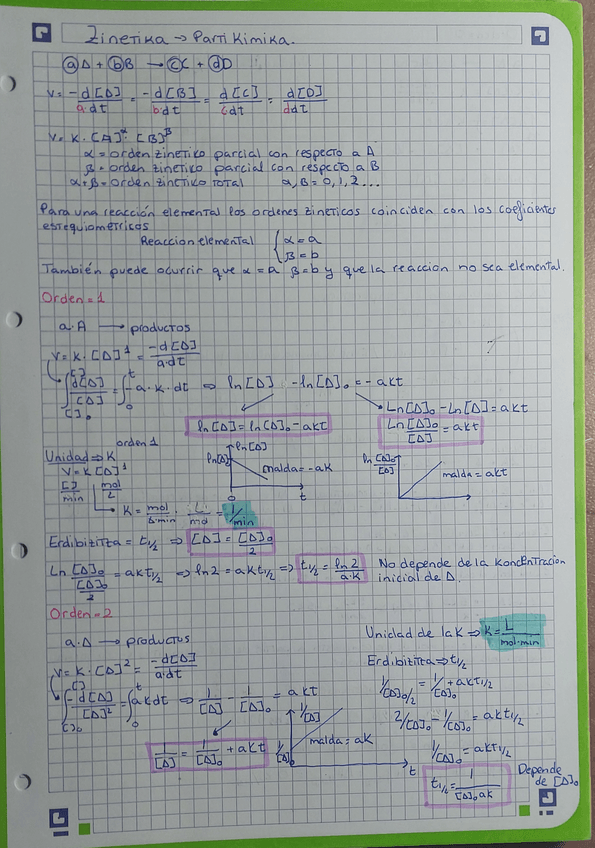 Zinetika → Parti Kimika.
aA + bB → cC + dD
v = -d[A]/a·dt = -d[B]/b·dt = d[C]/c·dt = d[D]/d·dt
v = k·[A]^α·[B]^β
α = orden zinetiko parcial con respecto a A
β = orden zinetiko parcial con respecto a B
α+β = orden zinetiko total α, β = 0, 1, 2...
Para una reacción elemental los ordenes zineticos coinciden con los coeficientes
estequiometricos
Reaccion elemental { α = a
β = b
También puede ocurrir que α = a β = b y que la reaccion no sea elemental.
Orden = 1
a·A → productos
v = k·[A]^1 = -d[A]/a·dt
∫_[]0^[] d[A]/[A] = ∫_0^t -a·k·dt ⇒ ln[A] - ln[A]0 = -akt
ln[A] = ln[A]0 - akt
Ln[A]0 - Ln[A] = akt
Ln [A]0/[A] = akt
orden 1
Unidad ⇒ K
v = k[A]^1
[]/min mol/L
K = mol/L·min · L/mol = 1/min
ln[A]
ln[A]0
malda = -ak
0 t
ln [A]0/[A]
malda = akt
Erdibizitza = t1/2 ⇒ [A] = [A]0/2
Ln [A]0/([A]0/2) = akt1/2 ⇒ ln2 = akt1/2 ⇒ t1/2 = ln2/a·k
No depende de la Koncentracion
inicial de A.
Orden = 2
a·A → productos
v = k·[A]^2 = -d[A]/a·dt
∫_[]0^[] -d[A]/[A]^2 = ∫_0^t akdt ⇒ 1/[A] - 1/[A]0 = akt
1/[A] = 1/[A]0 + akt
1/[A]
1/[A]0
malda = ak
t
Unidad de la K ⇒ K = L/mol·min
Erdibizitza ⇒ t1/2
1/[A]0/2 = 1/[A]0 + akt1/2
2/[A]0 - 1/[A]0 = akt1/2
1/[A]0 = akt1/2
t1/2 = 1/[A]0ak
Depende
de [A]0